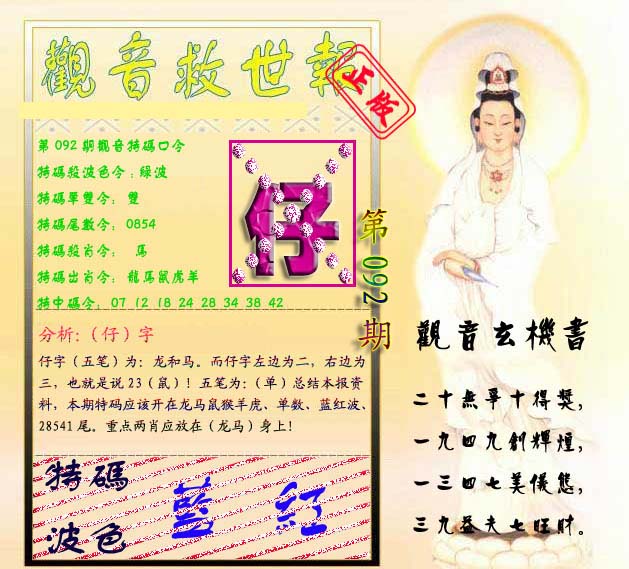 觀音救世報
正版
第092期觀音特碼口令
特碼殺波色令：綠波
特碼單雙令： 雙
特碼尾數令： 0854
特碼殺肖令： 馬
特碼出肖令： 龍馬鼠虎羊
特中碼令： 07 12 18 24 28 34 38 42
仔
第092期
分析：（仔）字
仔字（五笔）为：龙和马。而仔字左边为二，右边为
三，也就是说23（鼠）！五笔为：（单）总结本报资
料，本期特码应该开在龙马鼠猴羊虎、单数、蓝红波、
28541尾。重点两肖应放在（龙马）身上！
特碼
波色
藍 紅
觀音玄機書
二十無爭十得獎，
一九四九創輝煌，
一三四七美儀態，
三九益夫七旺財。